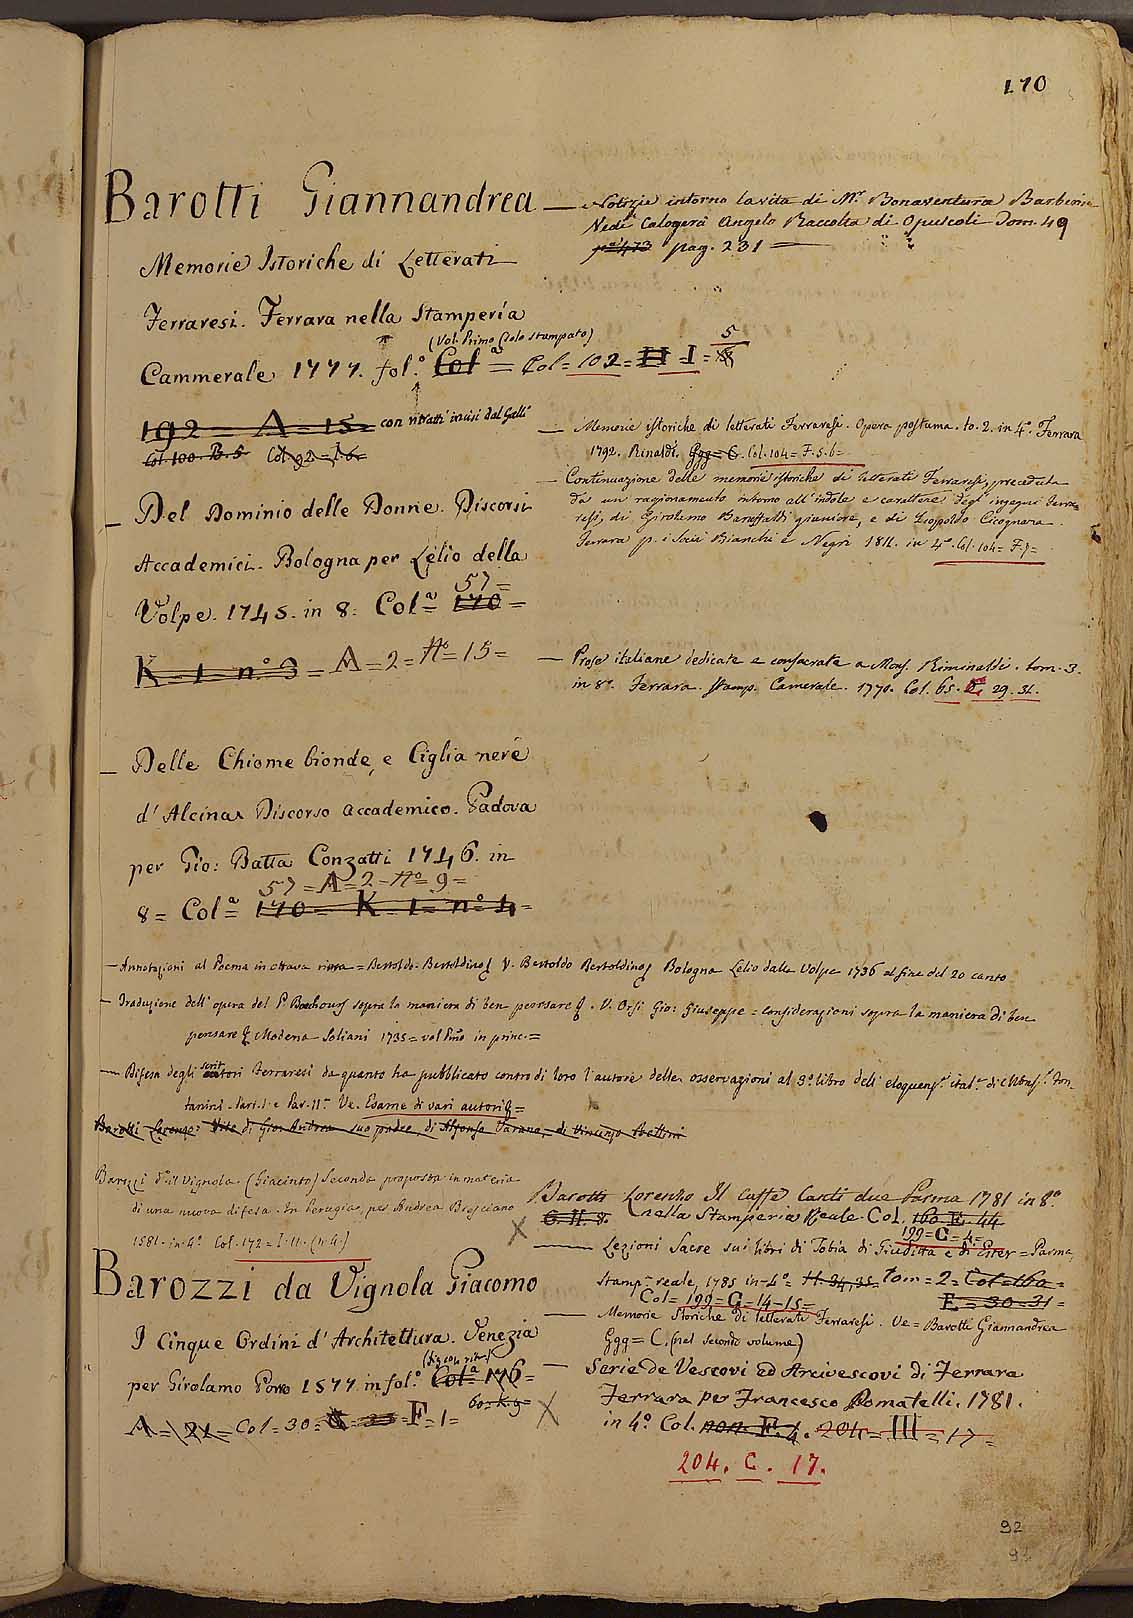 170
Barotti Giannandrea
Memorie Istoriche di Letterati
Ferraresi. Ferrara nella Stamperia
(Vol. Primo solo stampato)
Cammerale 1777. fol.º Col.ª = Col = 102 = H I = 5
192 = A = 15 = con ritratti incisi dal Galli
Col. 100. B. 5 Col. 92 = I. 6 =
— Del Dominio delle Donne. Discorsi
Accademici. Bologna per Lelio della
57 =
Volpe. 1745. in 8. Col.ª 170 =
K = 1 = n.º 3 = A = 2 = Nº = 15 =
— Delle Chiome bionde, e Ciglia nere
d'Alcina Discorso accademico. Padova
per Gio: Batta Conzatti 1746. in
57 = A = 2 = Nº 9 =
8 = Col.ª 170 = K = 1 = n.º 4 =
— Notizie intorno la vita di Mr. Bonaventura Barberini
Vedi Calogerà Angelo Raccolta di Opuscoli Tom. 49
pº 473 pag. 231 =
— Memorie istoriche di letterati Ferraresi. Opera postuma. to. 2. in 4º. Ferrara
1792. Rinaldi. Ggg = C. Col. 104 = F. 5. 6 =
— Continuazione delle memorie istoriche di letterati Ferraresi, preceduta
da un ragionamento intorno all'indole e carattere degl'ingegni Ferra-
resi, di Girolamo Baruffaldi giuniore, e di Leopoldo Cicognara.
Ferrara p. i Socii Bianchi e Negri 1811. in 4º. Col. 104 = F. 7 =
— Prose italiane dedicate e consacrate a Mons. Riminaldi. tom. 3.
in 8º. Ferrara. Stamp. Camerale. 1770. Col. 65. E. 29. 31.
— Annotazioni al Poema in ottava rima = Bertoldo Bertoldino & V. Bertoldo Bertoldino & Bologna Lelio dalla Volpe 1736 al fine del 20 canto
— Traduzione dell'opera del P. Bouhours sopra la maniera di ben pensare &. V. Orsi Gio: Giuseppe = considerazioni sopra la maniera di ben
pensare & Modena Soliani 1735 = vol. Pmo in princ. =
— Difesa degli scrittori Ferraresi da quanto ha pubblicato contro di loro l'autore delle osservazioni al 3º libro dell'eloquenz.ª ital.ª di Mons.r Fon-
tanini. Part. I. e Par. II.ª Ve. Esame di vari autori & =
Barotti Lorenzo: Vite di Gio: Andrea suo padre, di Alfonso Varano, di Vincenzo Bellini
Barozzi dº il Vignola (Giacinto) Seconda proposta in materia
di una nuova difesa. In Perugia, per Andrea Bresciano
1581. in 4º Col. 172 = I. 11. (n. 4.)
Barozzi da Vignola Giacomo
I Cinque Ordini d'Architettura. Venezia
per Girolamo Porro 1577. in fol.º Col.ª 176 =
60 = K 9 =
A = 21 = Col = 30 = F = 1 =
Barotti Lorenzo Il Caffè Canti due Parma 1781 in 8º
nella Stamperia Reale. Col. 160. E. 44
199 = C = 4 =
— Lezioni Sacre sui libri di Tobia di Giuditta e di Ester = Parma
Stamp. reale, 1785 in 4º = H. 34, 35. tom = 2 = Col = 160 =
Col = 199 = G = 14 - 15 = E = 30 = 31 =
— Memorie Storiche di letterati Ferraresi. Ve = Barotti Giannandrea
Ggg = C. (nel secondo volume)
— Serie de Vescovi ed Arcivescovi di Ferrara
Ferrara per Francesco Pomatelli. 1781.
in 4º. Col. non. F. 4. 204 = III = 17 =
204. C. 17.
92